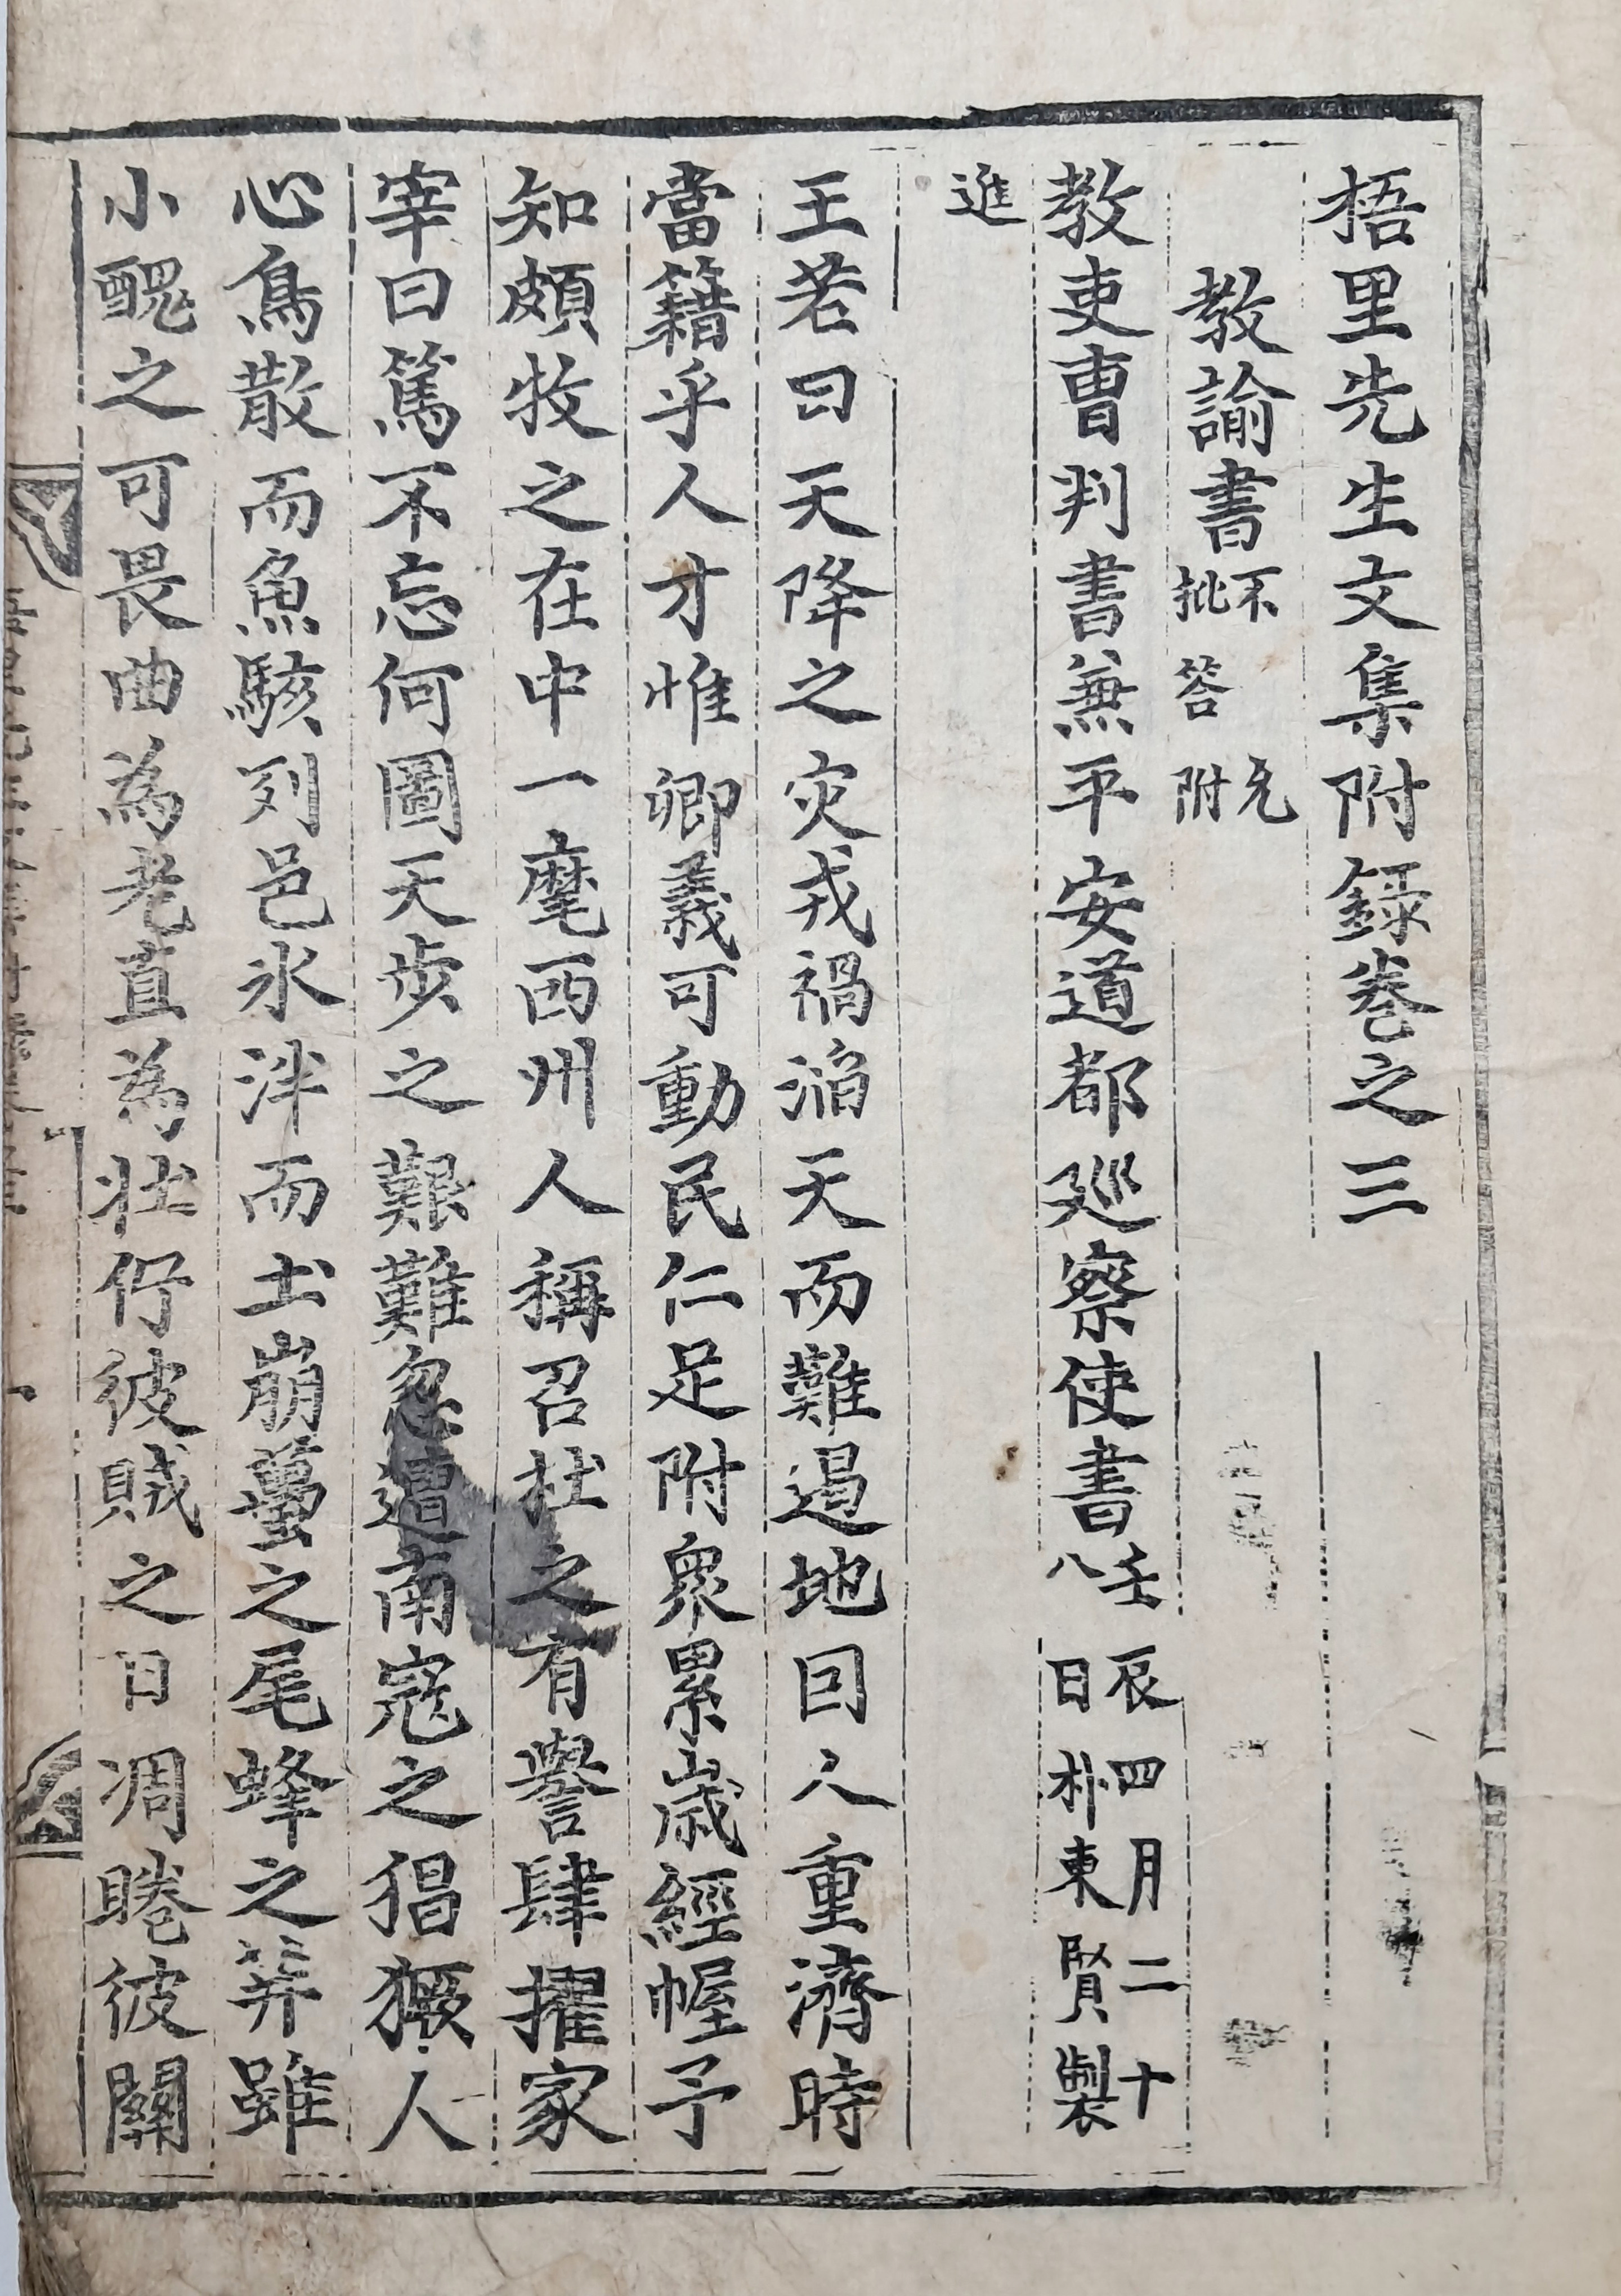 梧里先生文集附錄卷之三
教諭書不允批答附
教吏曹判書兼平安道都廵察使書壬辰四月二十八日朴東賢製
進
王若曰天降之灾戎禍滔天而難遏地囙人重濟時
當籍乎人才惟卿義可動民仁足附衆累歲經幄予
知頗牧之在中一麾西州人稱召杜之有譽肆擢家
宰曰篤不忘何圖天步之艱難忽遭南寇之猖獗人
心鳥散而魚駭列邑氷泮而土崩蠆之尾蜂之莽雖
小醜之可畏曲為老直為壯佇彼賊之日凋睠彼關